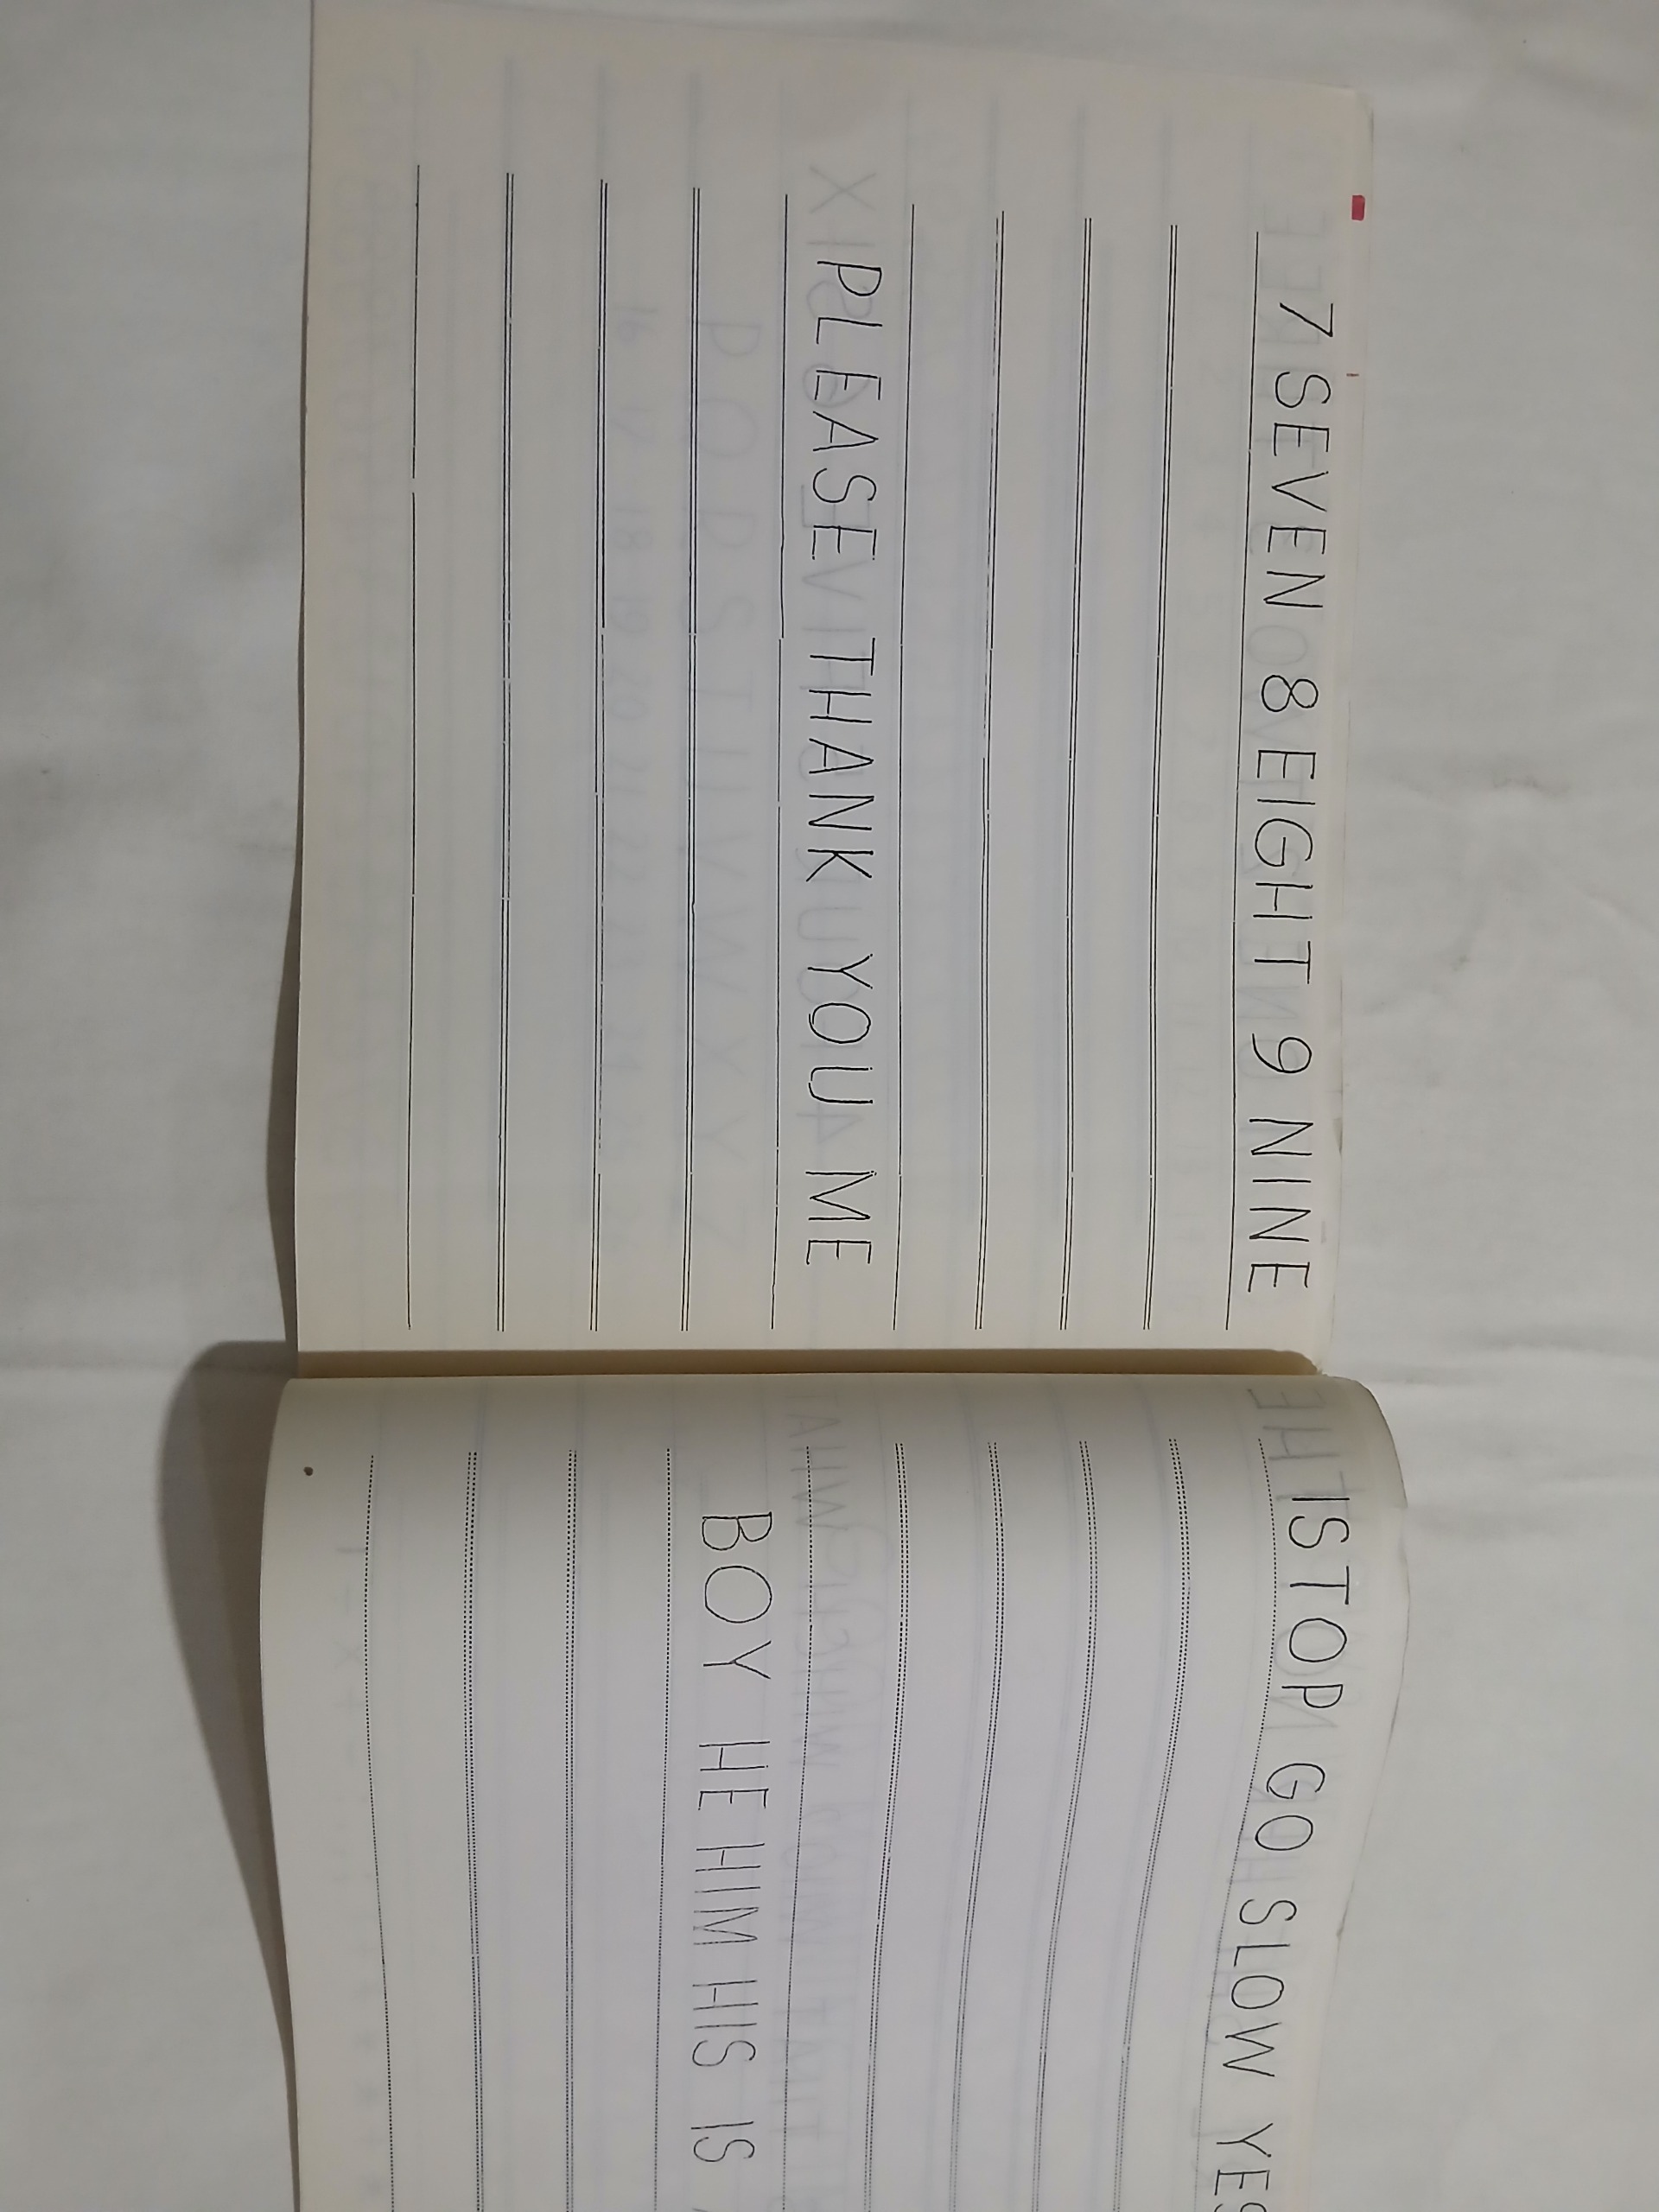 7 SEVEN 8 EIGHT 9 NINE
PLEASE THANK YOU ME
STOP GO SLOW YES
BOY HE HIM HIS IS